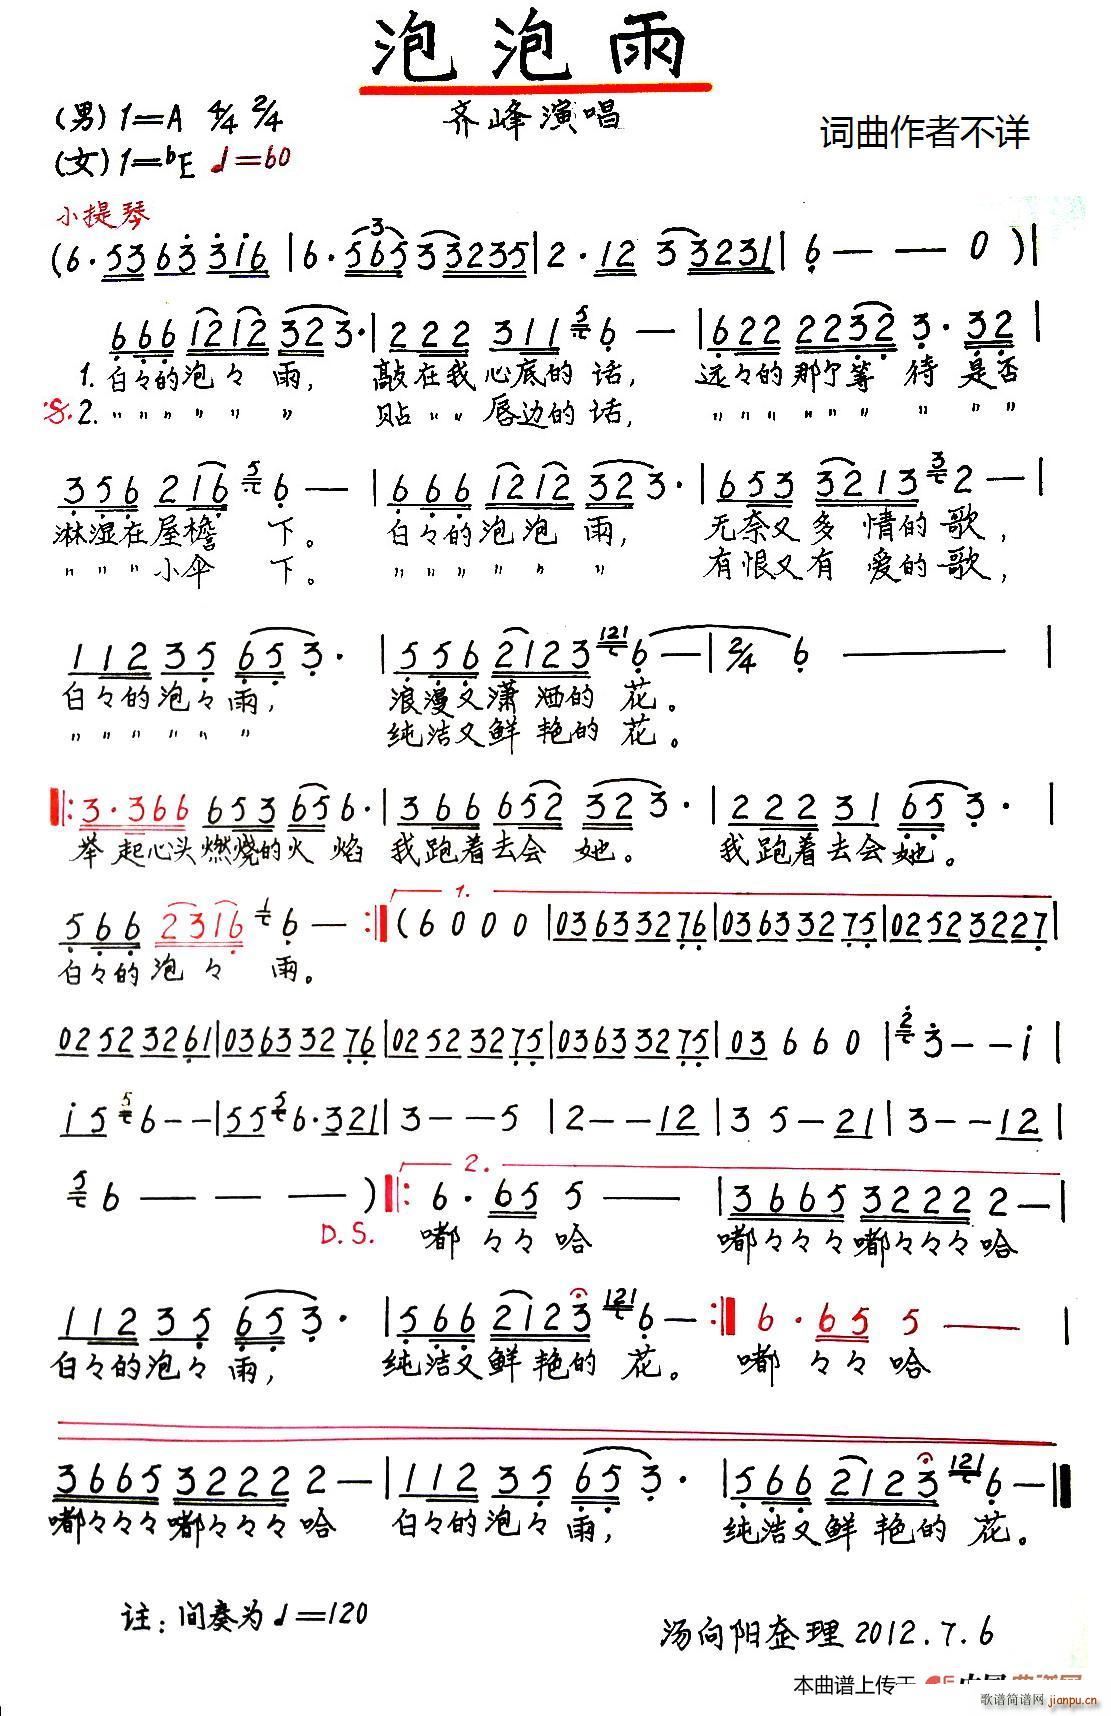 泡泡雨
(男) 1=A 4/4 2/4
齐峰演唱
词曲作者不详
(女) 1=bE ♩=60
小提琴
(6·53 63 316 | 6·565 33235 | 2·12 33231 | 6 — — 0 )|
3
666 1212 323· | 222 311 5 6 — | 622 2232 3·32 |
1. 白々的泡々雨, 敲在我心底的话, 远々的那个等待是否
𝄋 2. 〃〃〃〃〃〃 贴〃〃唇边的话, 〃〃〃〃〃〃〃〃〃
356 216 5 6 — | 666 1212 323· | 653 3213 3 2 — |
淋湿在屋檐下。 白々的泡泡雨, 无奈又多情的歌,
〃〃〃小伞下。 〃〃〃〃〃〃 有恨又有爱的歌,
112 35 653· | 556 2123 121 6 — | 2/4 6 —— |
白々的泡々雨, 浪漫又潇洒的花。
〃〃〃〃〃〃 纯洁又鲜艳的花。
‖: 3·366 653 656· | 366 652 323· | 222 31 653· |
举起心头燃烧的火焰 我跑着去会她。 我跑着去会她。
1.
566 2316 1 6 — :‖ (6 0 0 0 | 03633276 | 03633275 | 02523227 |
白々的泡々雨。
02523261 | 03633276 | 02523275 | 03633275 | 03 6 6 0 | 2 3 — — i |
i5 5 6 — — | 55 5 6·321 | 3 — — 5 | 2 — — 12 | 3 5 — 21 | 3 — — 12 |
2.
5 6 — — — ) ‖: 6·65 5 —— | 3665 3222 2 — |
D.S.
嘟々々哈 嘟々々々嘟々々々哈
112 35 653· | 566 2123 121 6 — :‖ 6·65 5 —— |
白々的泡々雨, 纯洁又鲜艳的花。 嘟々々哈
3665 3222 2 — | 112 35 653· | 566 2123 121 6 — ‖
嘟々々々嘟々々々哈 白々的泡々雨, 纯洁又鲜艳的花。
注: 间奏为♩=120
汤向阳整理 2012.7.6
本曲谱上传于
歌谱简谱网
jianpu.cn